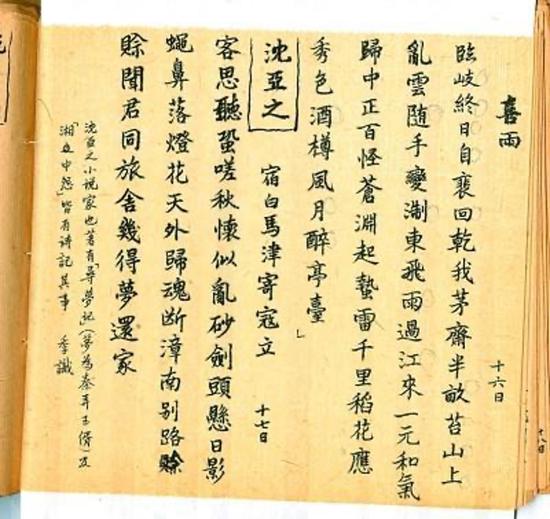 喜雨
十六日
臨岐終日自裵回乾我茅齋半畝苔山上
亂雲隨手變淛東飛雨過江來一元和氣
歸中正百怪蒼淵起蟄雷千里稻花應
秀色酒樽風月醉亭臺
沈亞之 宿白馬津寄寇立 十七日
客思聽蛩嗟秋懷似亂砂劍頭懸日影
蠅鼻落燈花天外歸魂断漳南别路賒
賒聞君同旅舍幾得夢還家
沈亞之小説家也著有「尋夢記」(夢為秦弄玉婿)及
「湘中怨」皆有詳記其事 季識
十八日